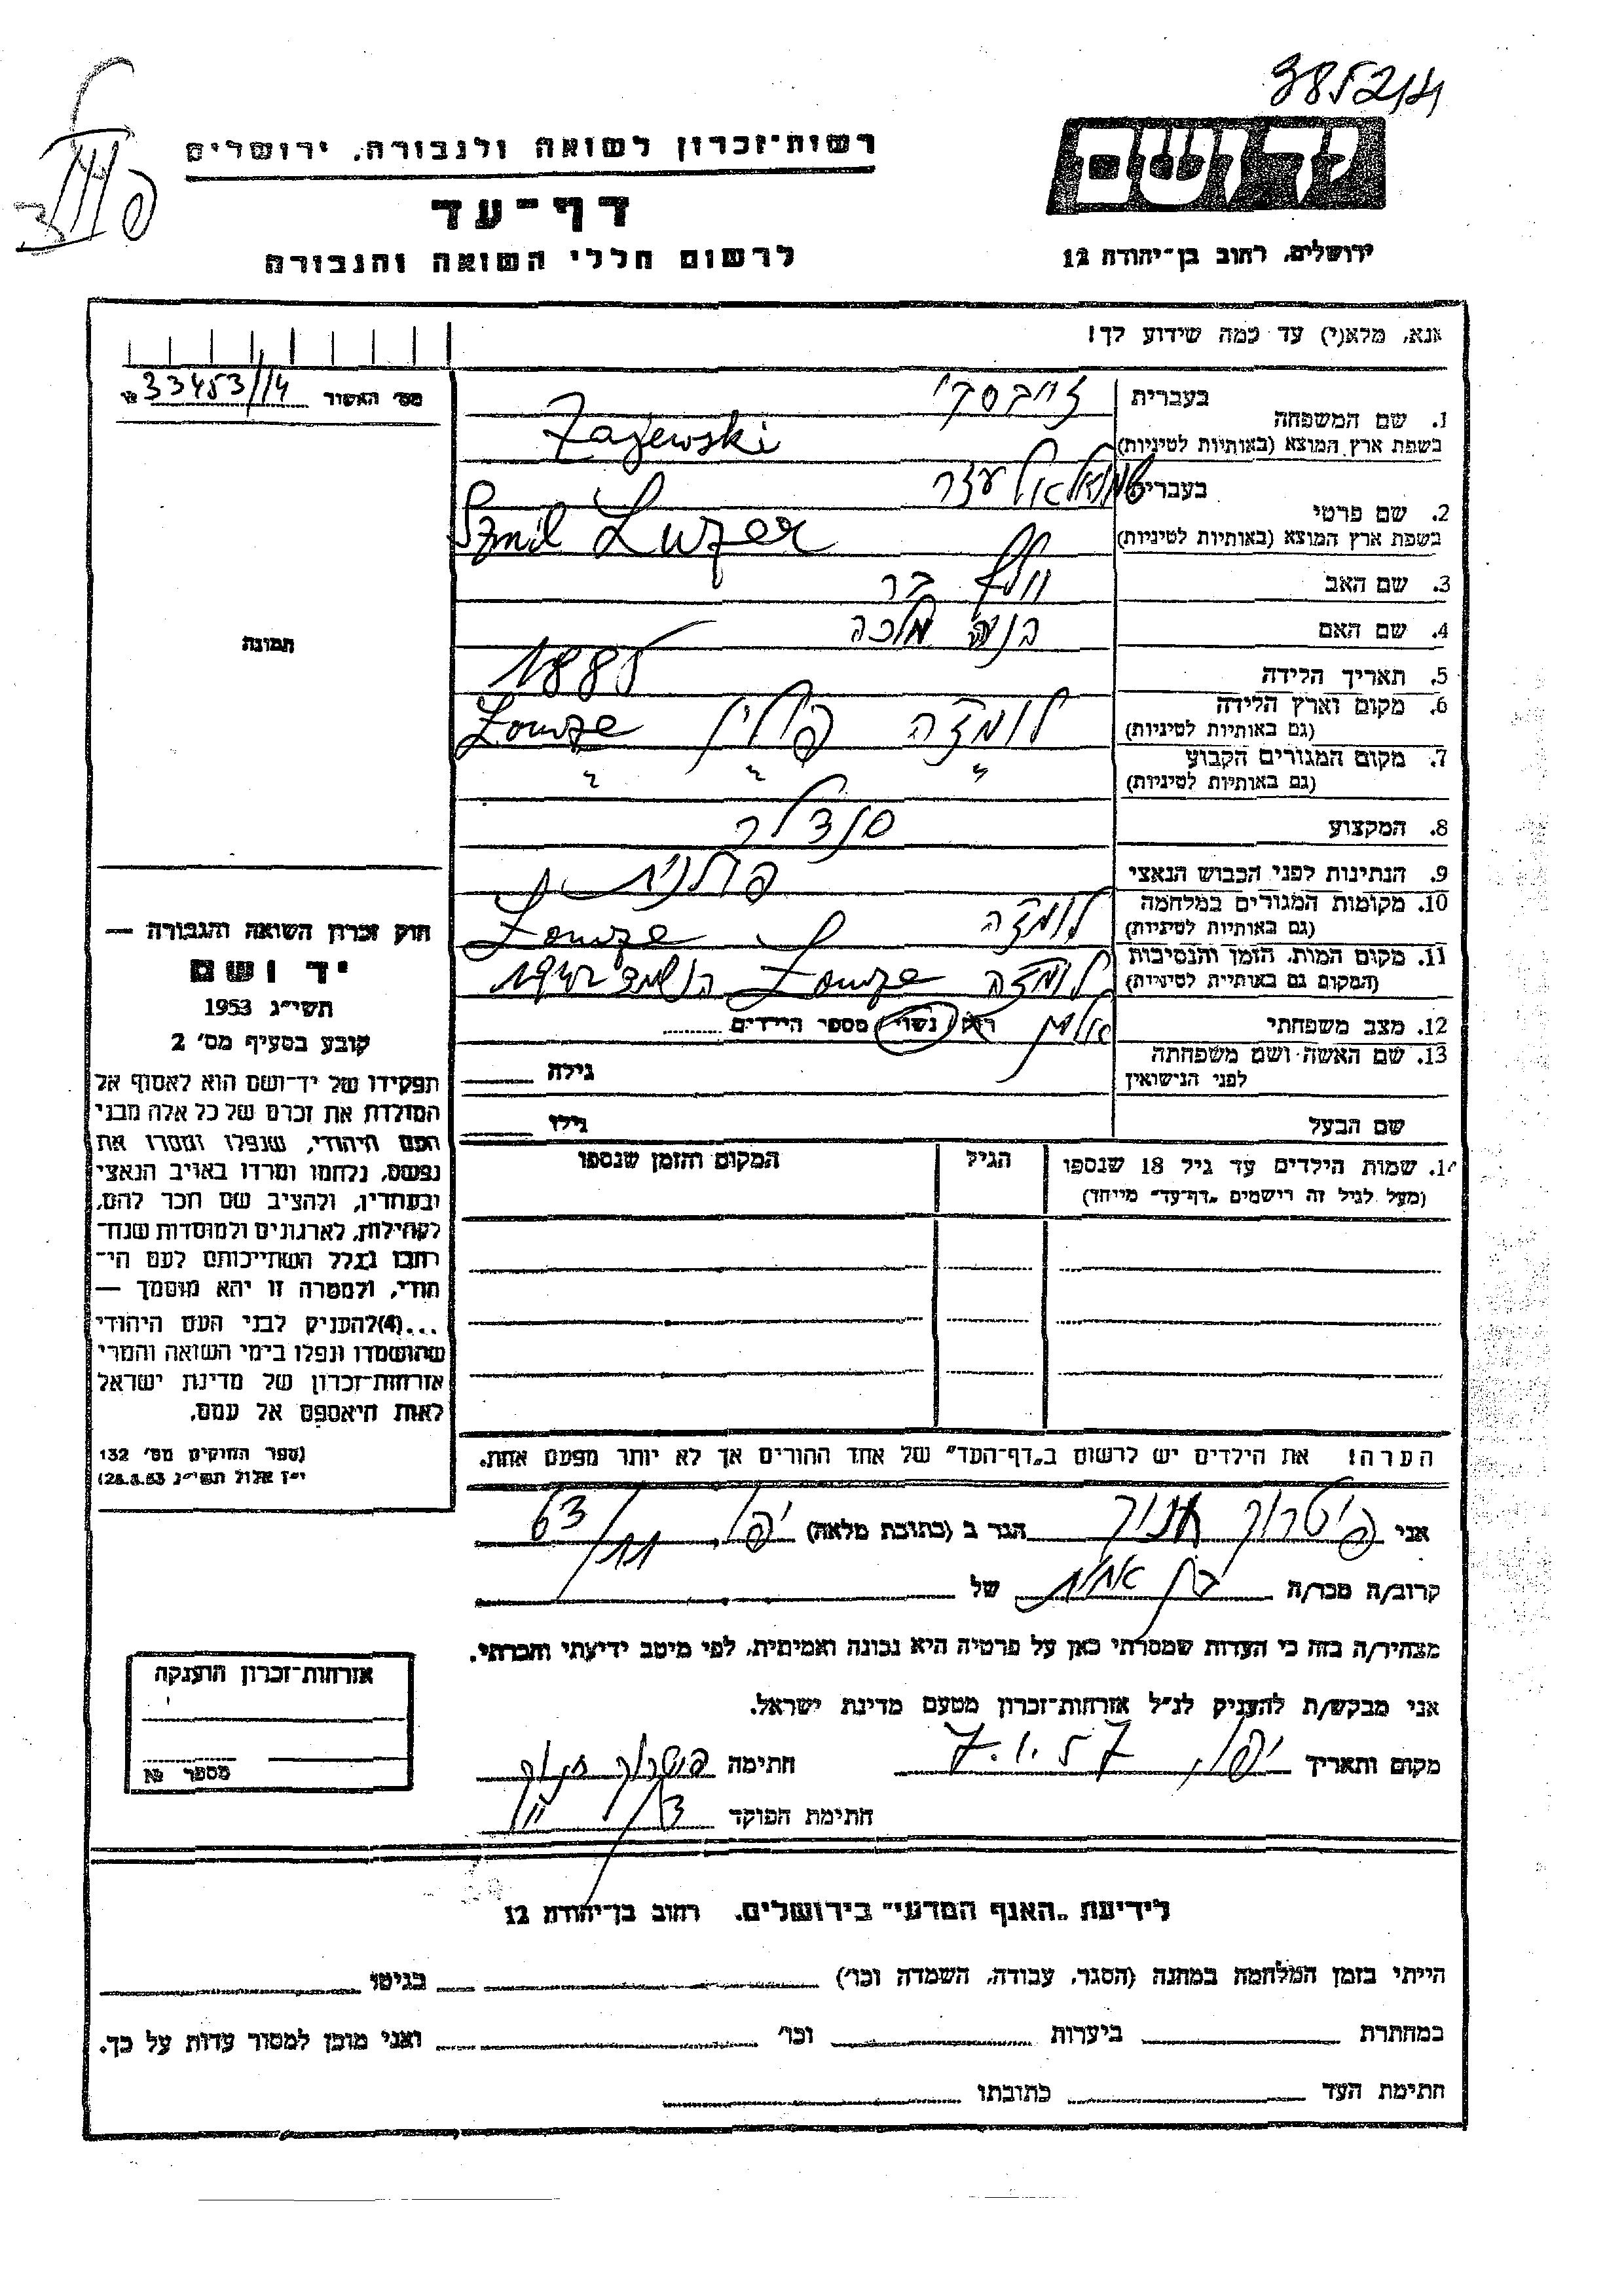 385214
יד ושם
ירושלים, רחוב בן־יהודה 12
רשות־זכרון לשואה ולגבורה, ירושלים
דף־עד
לרשום חללי השואה והגבורה
אנא, מלא(י) עד כמה שידוע לך!
מס׳ האשור 33453/14 №
1. שם המשפחה בעברית
בשפת ארץ המוצא (באותיות לטיניות) Zajewski
2. שם פרטי בעברית שמואל אלעזר
בשפת ארץ המוצא (באותיות לטיניות) Szmil Luzer
3. שם האב וולף בר
4. שם האם מלכה
5. תאריך הלידה 1885
6. מקום וארץ הלידה לומזה פולין Lomze
(גם באותיות לטיניות)
7. מקום המגורים הקבוע " " "
(גם באותיות לטיניות)
8. המקצוע סנדלר
9. הנתינות לפני הכבוש הנאצי פולנית
10. מקומות המגורים במלחמה לומזה Lomze
(גם באותיות לטיניות)
11. מקום המות, הזמן והנסיבות לומזה Lomze
(המקום גם באותיות לטיניות)
12. מצב משפחתי אלמן רווק נשוי מספר הילדים
13. שם האשה ושם משפחתה גילה
לפני הנישואין
שם הבעל גילו
14. שמות הילדים עד גיל 18 שנספו הגיל המקום והזמן שנספו
(מעל לגיל זה רישמים „דף־עד" מייחד)
הערה! את הילדים יש לרשום ב„דף־העד" של אחד ההורים אך לא יותר מפעם אחת.
תמונה
חוק זכרון השואה והגבורה —
יד ושם
תשי״ג 1953
קובע בסעיף מס׳ 2
תפקידו של יד־ושם הוא לאסוף אל
המולדת את זכרם של כל אלה מבני
העם היהודי, שנפלו ומסרו את
נפשם, נלחמו ומרדו באויב הנאצי
ובעוזריו, ולהציב שם וזכר להם,
לקהילות, לארגונים ולמוסדות שנח־
רבו בגלל השתייכותם לעם הי־
הודי, ולמטרה זו יהא מוסמך —
...(4)להעניק לבני העם היהודי
שהושמדו ונפלו בימי השואה והמרי
אזרחות־זכרון של מדינת ישראל
לאות היאספם אל עמם.
(ספר החוקים מס׳ 132
י״ז אלול תשי״ג 28.8.53)
אני פיטרוך חנוך הגר ב (כתובת מלאה) יפו, 63/11
קרוב/ה מכר/ה בן אחות של
מצהיר/ה בזה כי העדות שמסרתי כאן על פרטיה היא נכונה ואמיתית, לפי מיטב ידיעתי והכרתי.
אני מבקש/ת להעניק לנ״ל אזרחות־זכרון מטעם מדינת ישראל.
מקום ותאריך יפו, 7.1.57 חתימה פיטרוך חנוך
חתימת הפוקד
אזרחות־זכרון הוענקה
מספר №
לידיעת „האגף המדעי" בירושלים, רחוב בן־יהודה 12
הייתי בזמן המלחמה במחנה (הסגר, עבודה, השמדה וכו׳) בגיטו
במחתרת ביערות וכו׳ ואני מוכן למסור עדות על כך.
חתימת העד כתובתו